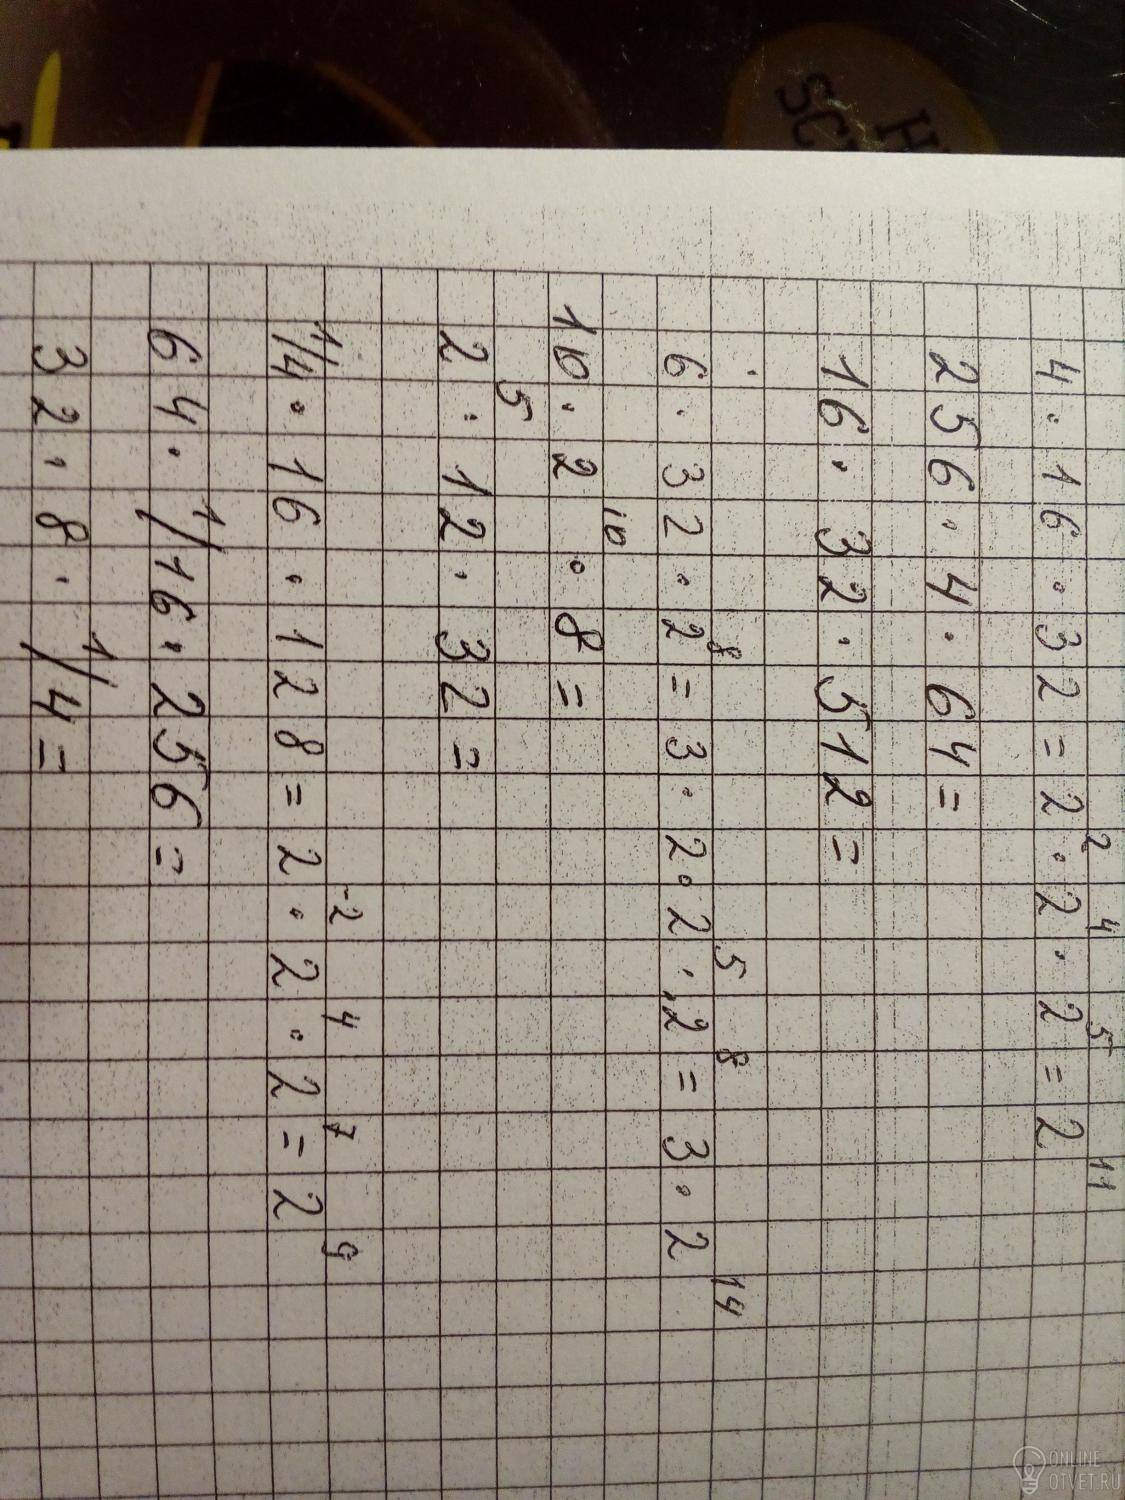 4 · 16 · 32 = 2² · 2⁴ · 2⁵ = 2¹¹
256 · 4 · 64 =
16 · 32 · 512 =
6 · 32 · 2⁸ = 3 · 2 · 2⁵ · 2⁸ = 3 · 2¹⁴
10 · 2¹⁰ · 8 =
2⁵ · 12 · 32 =
1/4 · 16 · 128 = 2⁻² · 2⁴ · 2⁷ = 2⁹
64 · 1/16 · 256 =
32 · 8 · 1/4 =
ONLINE
OTVET.RU